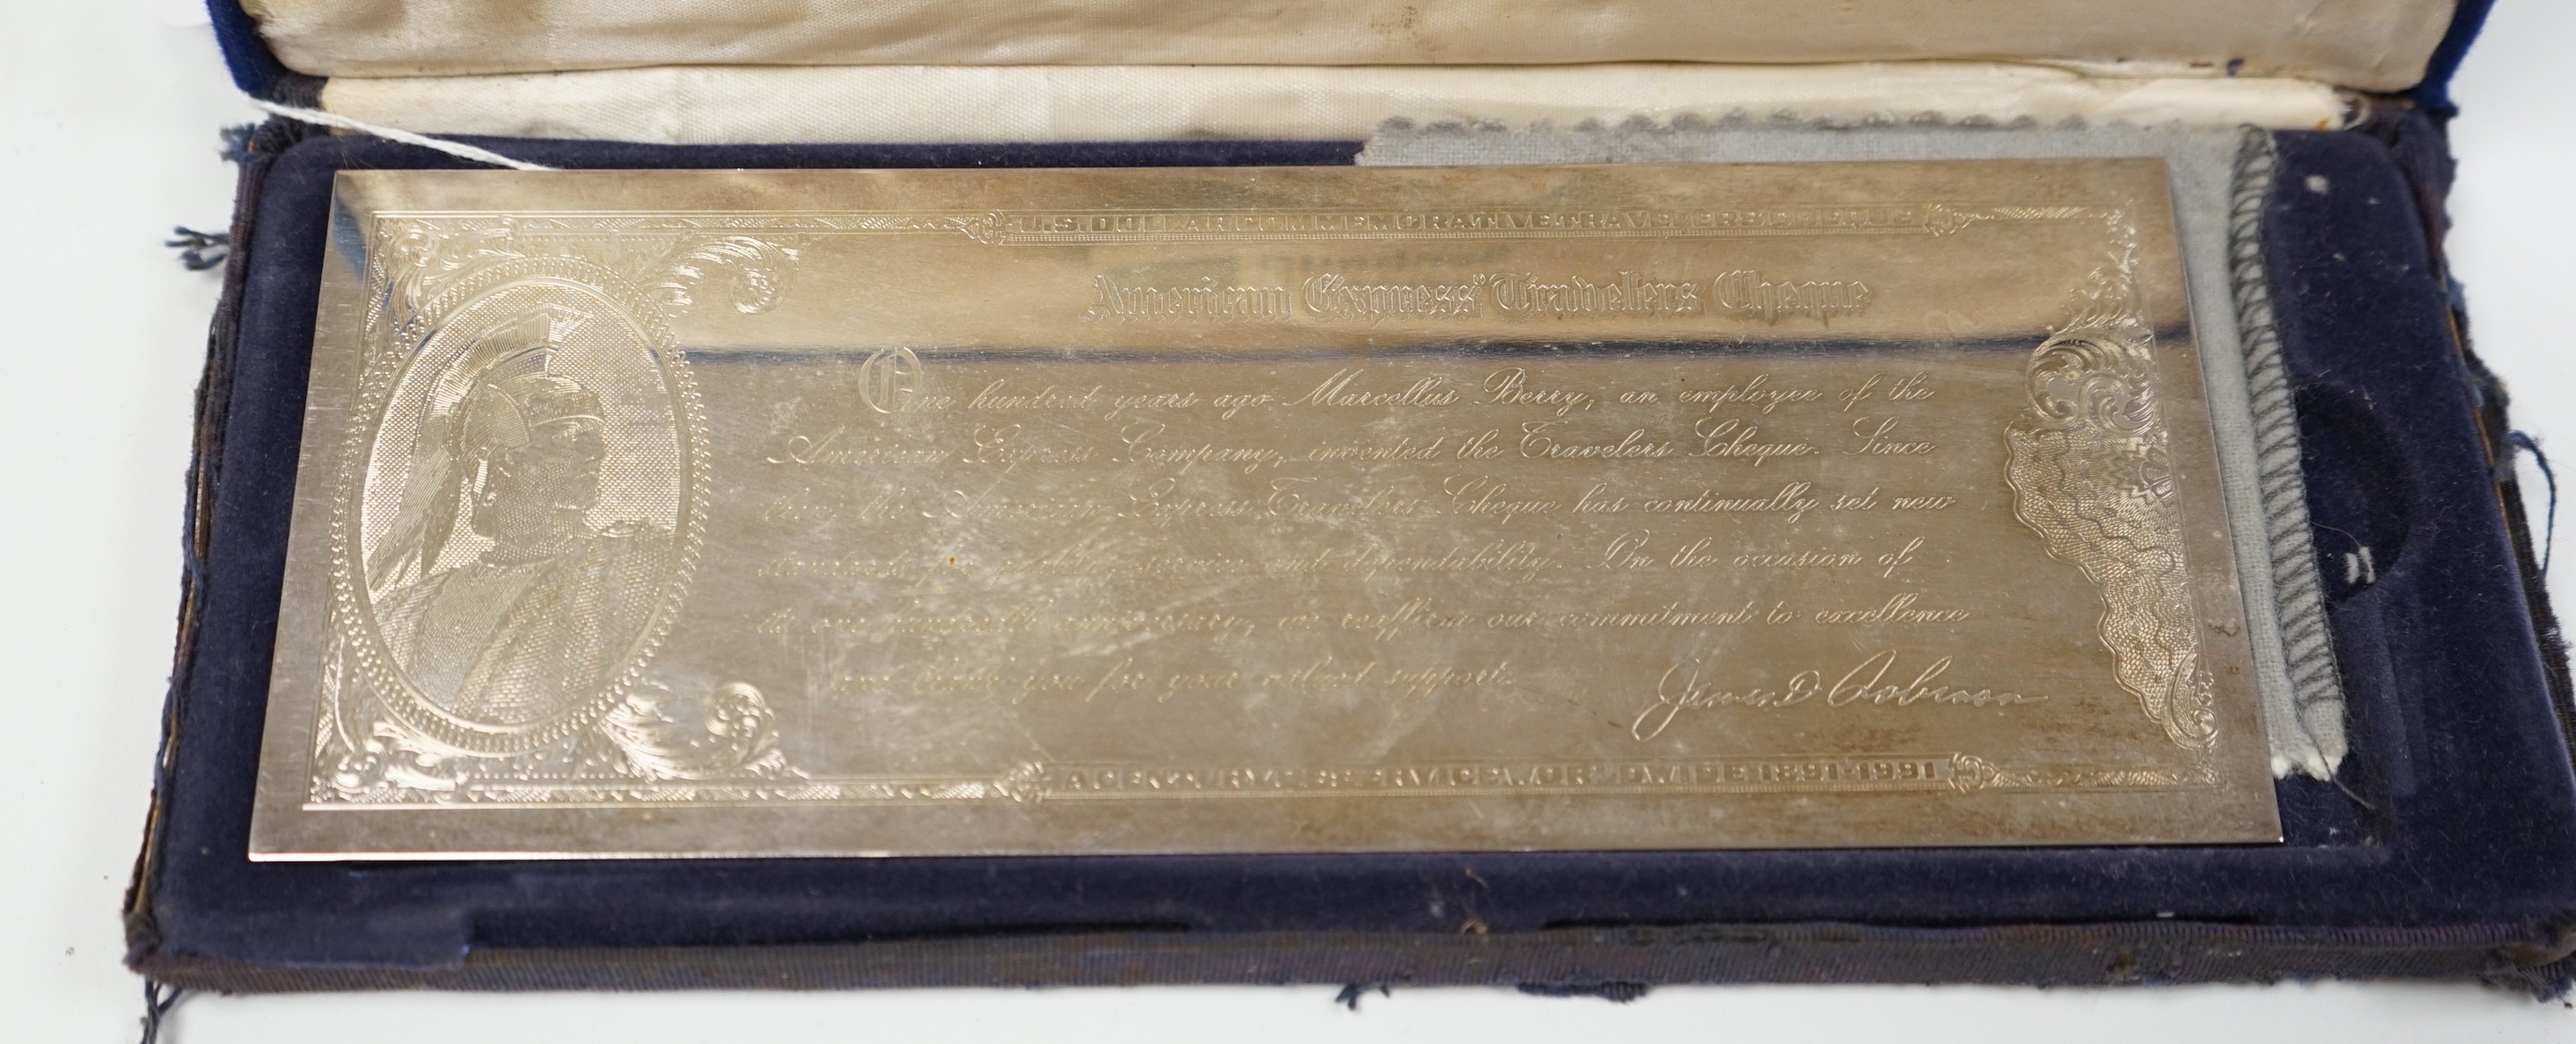 U.S. DOLLAR COMMEMORATIVE TRAVELERS CHEQUE
American Express® Travelers Cheque
One hundred years ago Marcellus Berry, an employee of the
American Express Company, invented the Travelers Cheque. Since
then, the American Express Travelers Cheque has continually set new
standards for quality, service and dependability. On the occasion of
its one hundredth anniversary, we reaffirm our commitment to excellence
and thank you for your valued support.
James D Robinson
A CENTURY OF SERVICE WORLDWIDE 1891-1991